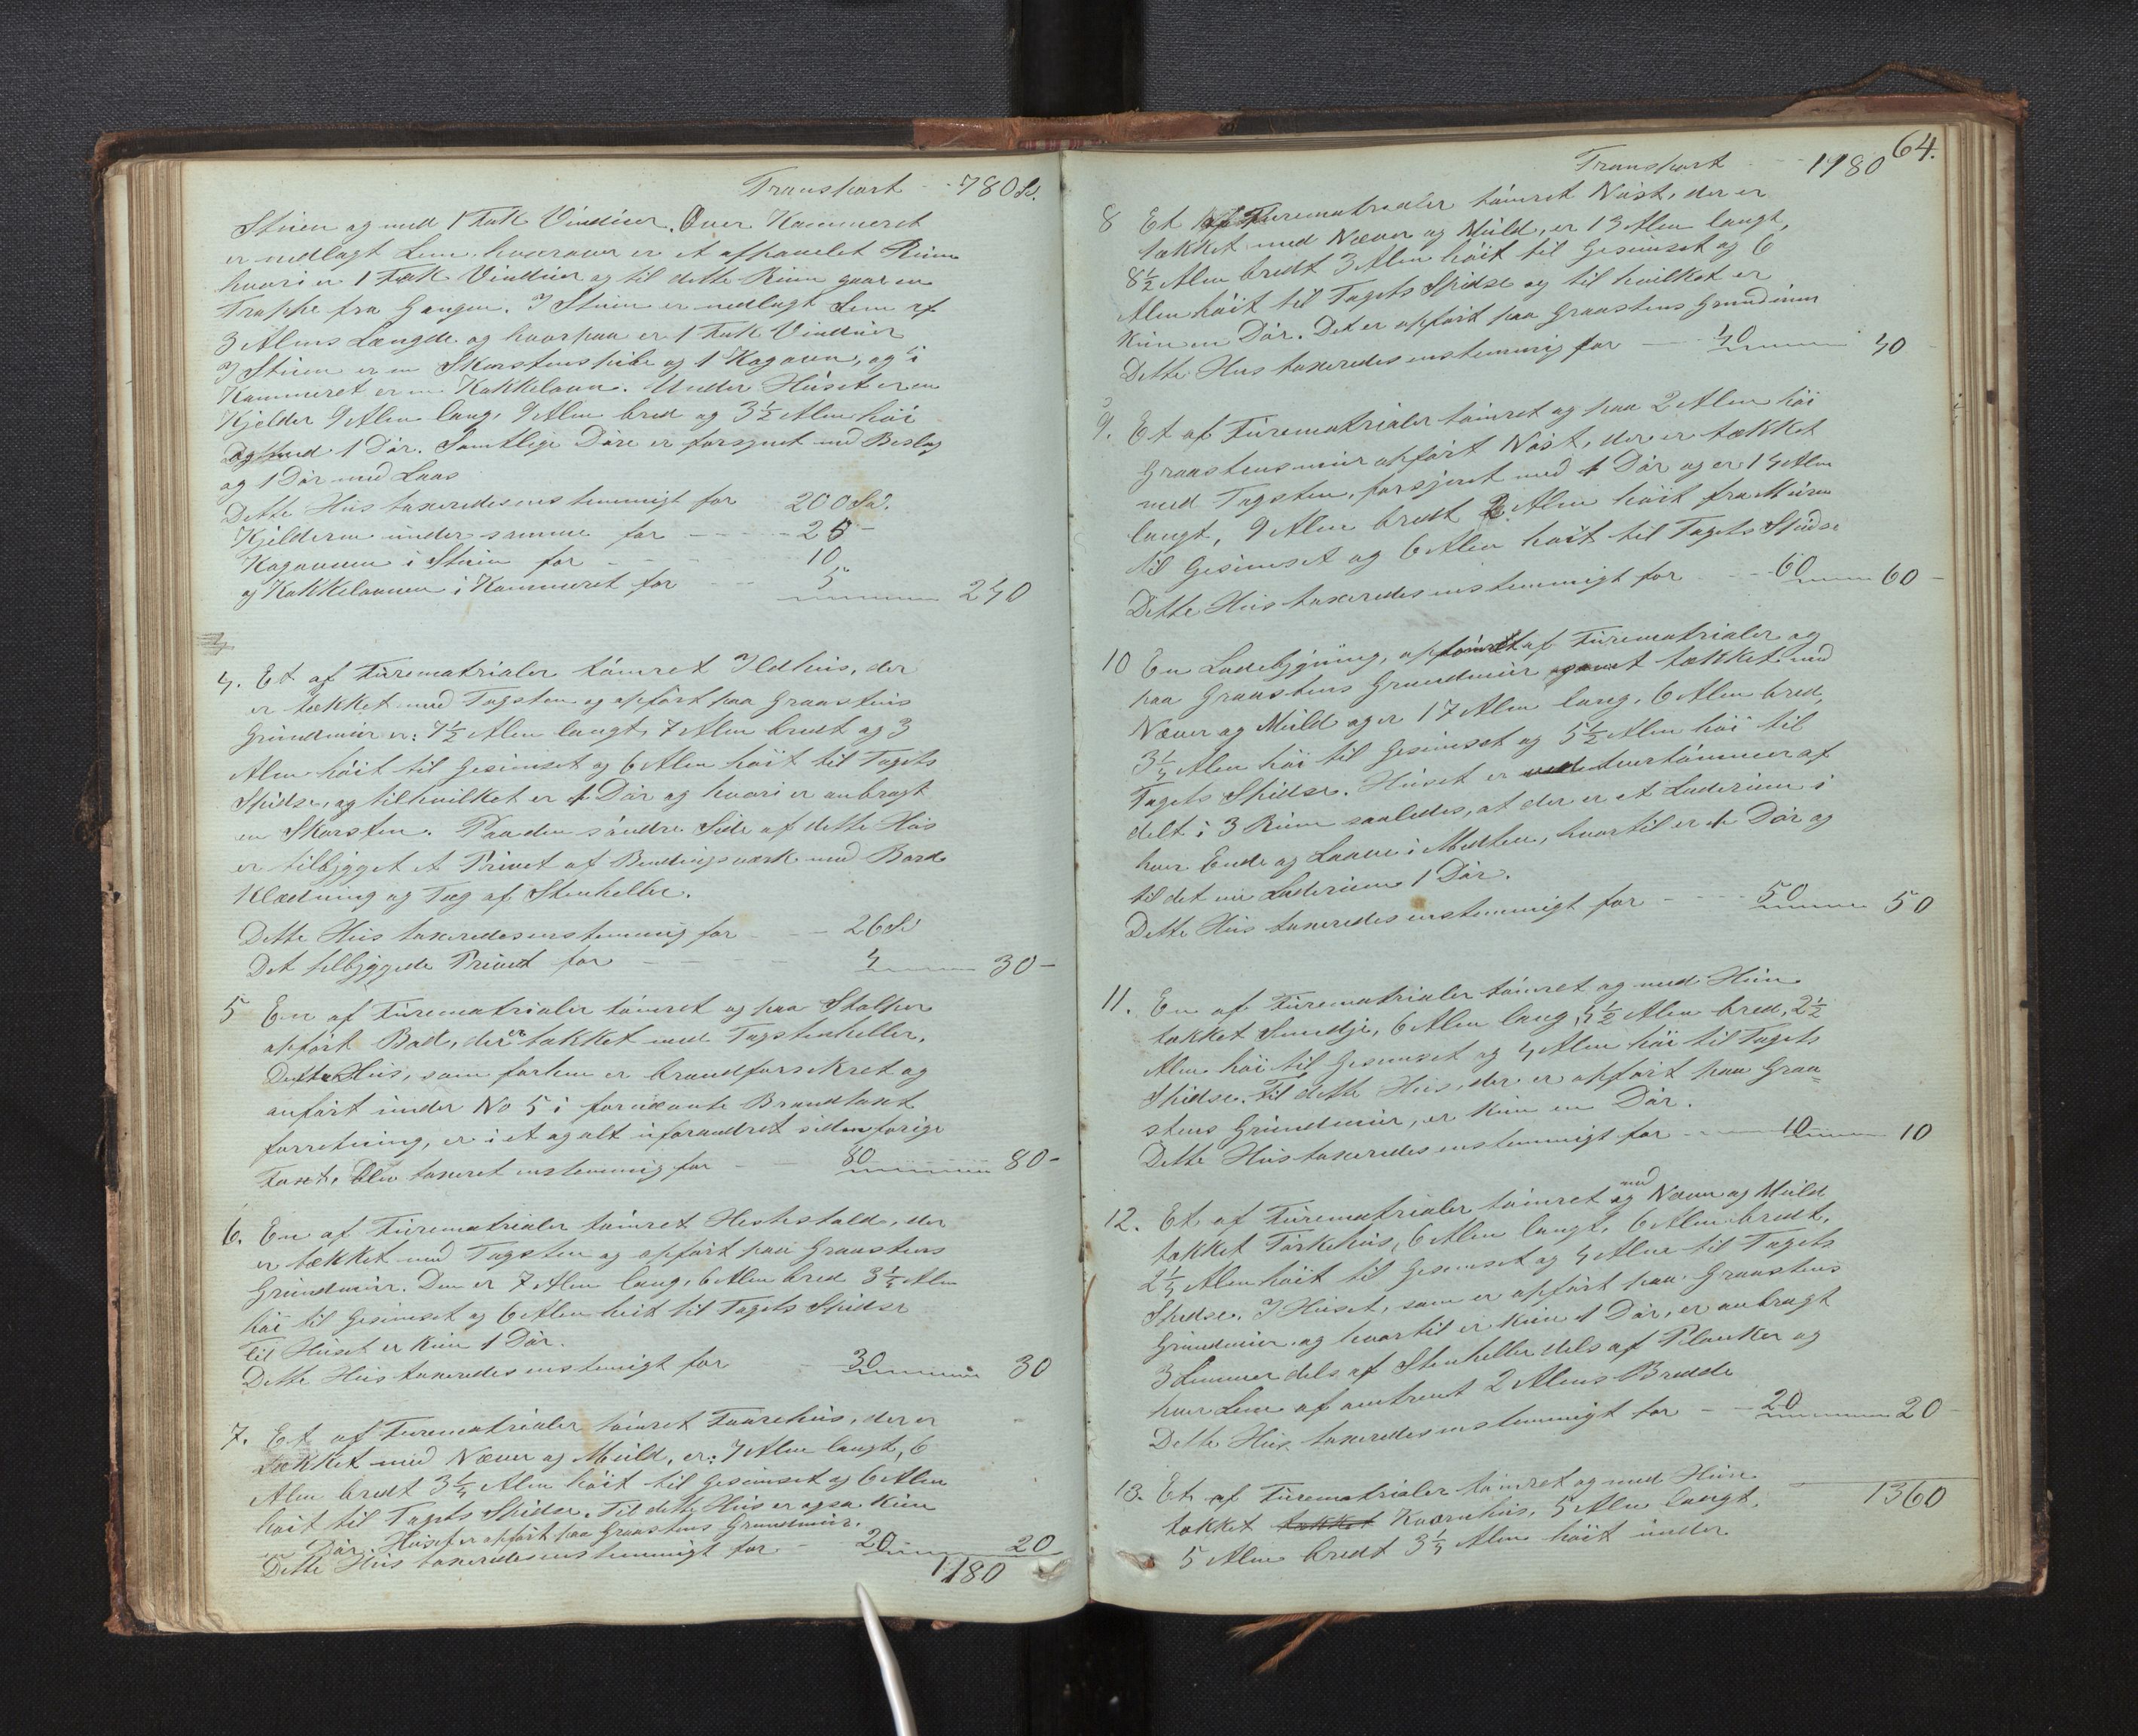 Transport - - 780 Sd.
Stuen og med 1 Fak Vinduer. Over Kammeret
er nedlagt Lem, hvorover er et afpanelet Rum
hvori er 1 Fak Vinduer og til dette Rum gaar en
Trappe fra Gangen. I Stuen er nedlagt Lem af
3 Alens Længde og hvorpaa er 1 Fak Vinduer
I Stuen er en Skorstenspibe og 1 Kogovn, og i
Kammeret er en Kakkelovn. Under Huset er en
Kjelder 9 Alen lang, 9 Alen bred og 3½ Alen høi
og med 1 Dør. Samtlige Døre er forsynet med Beslag
og 1 Dør med Laas
Dette Hus taxeredes enstemmigt for 200 Sd.
Kjelderen under samme for - - - - 25 -
Kogovnen i Stuen for - - - 10 "
og Kakkelovnen i Kammeret for - - - 5 " 240
4. Et af Furematrialer tømret Ildhus, der
er tækket med Tagsten og opført paa Graastens
Grundmur er: 7½ Alen langt, 7 Alen bredt og 3
Alen høit til Gesimset og 6 Alen høit til Tagets
Spidse, og til hvilket er 1 Dør og hvori er anbragt
en Skorsten. Paa den søndre Side af dette Hus
er tilbygget et Privet af Bindingsværk med Bord
Klædning og Tag af Stenheller.
Dette Hus taxeredes enstemmig for - - 26 Sd
Det tilbyggede Privet for - - - - 4 30 -
5 En af Furematrialer tømret og paa Stolper
opført Bod, der er tækket med Tagstenheller.
Dette Hus, som forhen er brandforsikret og
anført under No 5 i forrige Brandtaxt
forretning, er i et og alt uforandret siden forige
Taxt, blev taxeret enstemmig for - - 80 80 -
6. En af Furematrialer tømret Hestestald, der
er tækket med Tagsten og opført paa Graastens
Grundmur. Den er 7 Alen lang, 6 Alen bred 3½ Alen
høi til Gesimset og 6 Alen høit til Tagets Spidse
Til Huset er kun 1 Dør.
Dette Hus taxeredes enstemigt for 30 30
7. Et af Furematrialer tømret Faarehus, der er
tækket med Næver og Muld, er: 7 Alen langt, 6
Alen bredt 3¼ Alen høit til Gesimset og 6 Alen
høit til Tagets Spidse. Til dette Hus er ogsa kun
en Dør. Huset er opført paa Graastens Grundmur.
Dette Hus taxeredes enstemmigt for - 20 20
1180
64.
Transport - - 1180
8 Et af Furematrialer tømret Nøst, der er
tækket med Næver og Muld, er 13 Alen langt,
8½ Alen bredt 3 Alen høit til Gesimset og 6
Alen høit til Tagets Spidse og til hvilket er
kun en Dør. Det er opført paa Graastens Grundmur
Dette Hus taxeredes enstemmig for - - 40 40
9. Et af Furematrialer tømret og paa 2 Alen høi
Graastensmur opført Nøst, der er tækket
med Tagsten, forsynet med 1 Dør og er 14 Alen
langt, 9 Alen bredt 2 Alen høit fra Muren
til Gesimset og 6 Alen høit til Tagets Spidse
Dette Hus taxeredes enstemmigt for - - - 60 60 -
10 En Ladebygning, optømret af Furematrialer og
paa Graastens Grundmur samt tækket med
Næver og Muld og er 17 Alen lang, 6 Alen bred,
3¼ Alen høi til Gesimset og 5½ Alen høi til
Tagets Spidse. Huset er ved tvertømmer af
delt i 3 Rum saaledes, at der er et Laderum i
hver Ende og Laave i Midten, hvortil er 1 Dør og
til det ene Laderum 1 Dør.
Dette Hus taxeredes enstemmigt for - - - - 50 50
11. En af Furematrialer tømret og med Hun
tækket Smedje, 6 Alen lang, 5½ Alen bred, 2½
Alen høi til Gesimset og 4 Alen høi til Tagets
Spidse. Til dette Hus, der er opført paa Graa=
stens Grundmur, er kun en Dør.
Dette Hus taxeredes enstemmigt for - - - 10 10
12. Et af Furematrialer tømret og med Næver og Muld
tækket Tørkehus, 6 Alen langt, 6 Alen bredt,
2¼ Alen høit til Gesimset og 4 Alen til Tagets
Spidse. I Huset, som er opført paa Graastens
Grundmur og hvortil er kun 1 Dør, er anbragt
3 Lemmer dels af Stenheller dels af Planker og
hver Lem af omtrent 2 Alens Bredde
Dette Hus taxeredes enstemmigt for - - 20 20 -
13. Et af Furematrialer tømret og med Hun 1360
tækket tækket Kværnhus, 5 Alen langt,
5 Alen bredt 3¼ Alen høit under